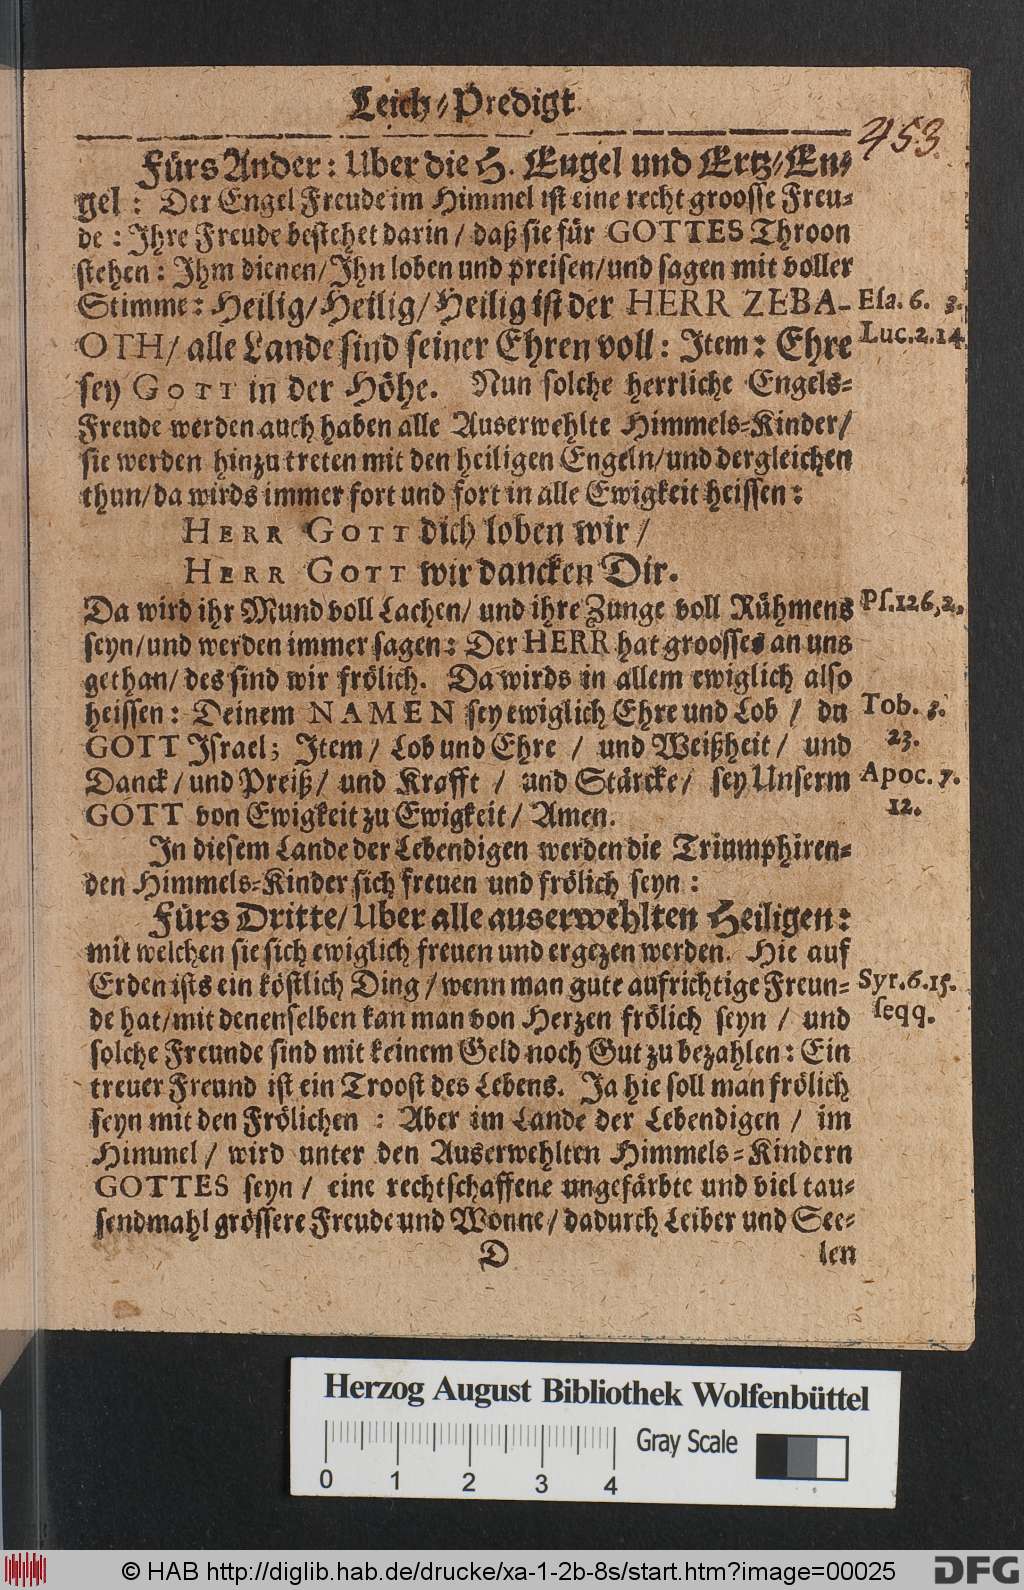 Leich-Predigt
453.
Fürs Ander: Uber die H. Eugel und Ertz-En-
gel: Der Engel Freude im Himmel ist eine recht groosse Freu-
de: Ihre Freude bestehet darin / daß sie für GOTTES Throon
stehen: Ihm dienen / Ihn loben und preisen / und sagen mit voller
Stimme: Heilig / Heilig / Heilig ist der HERR ZEBA-
Esa. 6. 3.
OTH / alle Lande sind seiner Ehren voll: Item: Ehre
Luc. 2. 14.
sey GOTT in der Höhe. Nun solche herrliche Engels-
Freude werden auch haben alle Auserwehlte Himmels-Kinder /
sie werden hinzu treten mit den heiligen Engeln / und dergleichen
thun / da wirds immer fort und fort in alle Ewigkeit heissen:
HERR GOTT dich loben wir /
HERR GOTT wir dancken Dir.
Da wird ihr Mund voll Lachen / und ihre Zunge voll Rühmens
Ps. 126, 2.
seyn / und werden immer sagen: Der HERR hat groosses an uns
gethan / des sind wir frölich. Da wirds in allem ewiglich also
heissen: Deinem NAMEN sey ewiglich Ehre und Lob / du
Tob. 3.
GOTT Israel; Item / Lob und Ehre / und Weißheit / und
23.
Danck / und Preiß / und Krafft / und Stärcke / sey Unserm
Apoc. 7.
GOTT von Ewigkeit zu Ewigkeit / Amen.
12.
In diesem Lande der Lebendigen werden die Triumphiren-
den Himmels-Kinder sich freuen und frölich seyn:
Fürs Dritte / Uber alle auserwehlten Heiligen:
mit welchen sie sich ewiglich freuen und ergezen werden. Hie auf
Erden ists ein köstlich Ding / wenn man gute aufrichtige Freun-
Syr. 6. 15.
de hat / mit denenselben kan man von Herzen frölich seyn / und
seqq.
solche Freunde sind mit keinem Geld noch Gut zu bezahlen: Ein
treuer Freund ist ein Troost des Lebens. Ja hie soll man frölich
seyn mit den Frölichen: Aber im Lande der Lebendigen / im
Himmel / wird unter den Auserwehlten Himmels-Kindern
GOTTES seyn / eine rechtschaffene ungefärbte und viel tau-
sendmahl grössere Freude und Wonne / dadurch Leiber und See-
D
len
Herzog August Bibliothek Wolfenbüttel
Gray Scale
0 1 2 3 4
© HAB http://diglib.hab.de/drucke/xa-1-2b-8s/start.htm?image=00025
DFG